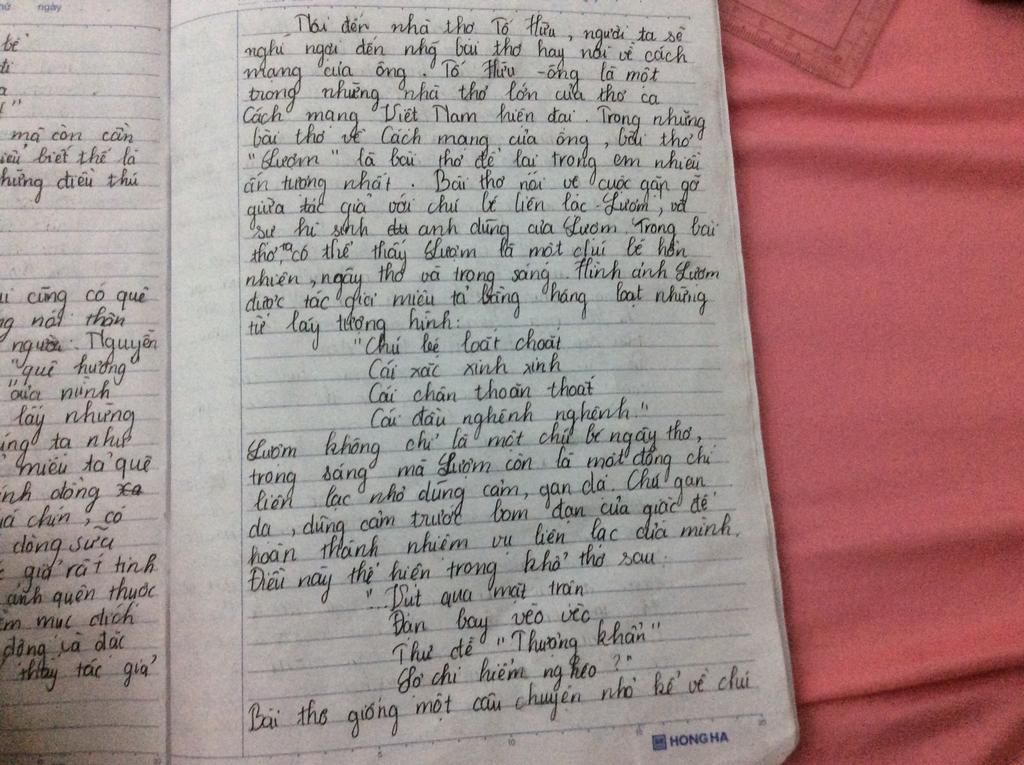 ngày
bé
đi
a
"
mà còn cần
iểu biết thế là
những điều thú
ai cũng có quê
ng nói thân
người. Nguyễn
"quê hương
của mình
lấy những
úng ta như
miêu tả quê
ình dòng
á chín, có
dòng sữa
giả rất tinh
ảnh quen thuộc
ằm mục đích
động và đặc
thấy tác giả
Nói đến nhà thơ Tố Hữu, người ta sẽ
nghĩ ngơi đến nhg bài thơ hay nói về cách
mạng của ông. Tố Hữu - ông là một
trong những nhà thơ lớn của thơ ca
Cách mạng Việt Nam hiện đại. Trong những
bài thơ về Cách mạng của ông, bài thơ
"Lượm" là bài thơ để lại trong em nhiều
ấn tượng nhất. Bài thơ nói về cuộc gặp gỡ
giữa tác giả với chú bé liên lạc - Lượm, và
sự hi sinh anh dũng của Lượm. Trong bài
thơ, ta có thể thấy Lượm là một chú bé hồn
nhiên, ngây thơ và trong sáng. Hình ảnh Lượm
được tác giả miêu tả bằng hàng loạt những
từ láy tượng hình:
"Chú bé loắt choắt
Cái xắc xinh xinh
Cái chân thoăn thoắt
Cái đầu nghênh nghênh."
Lượm không chỉ là một chú bé ngây thơ,
trong sáng mà Lượm còn là một đồng chí
liên lạc nhỏ dũng cảm, gan dạ. Chú gan
dạ, dũng cảm trước bom đạn của giặc để
hoàn thành nhiệm vụ liên lạc của mình.
Điều này thể hiện trong khổ thơ sau:
"...Vụt qua mặt trận
Đạn bay vèo vèo
Thư đề "Thượng khẩn"
Sợ chi hiểm nghèo?"
Bài thơ giống một câu chuyện nhỏ kể về chú
5 10 15 20
HONG HA